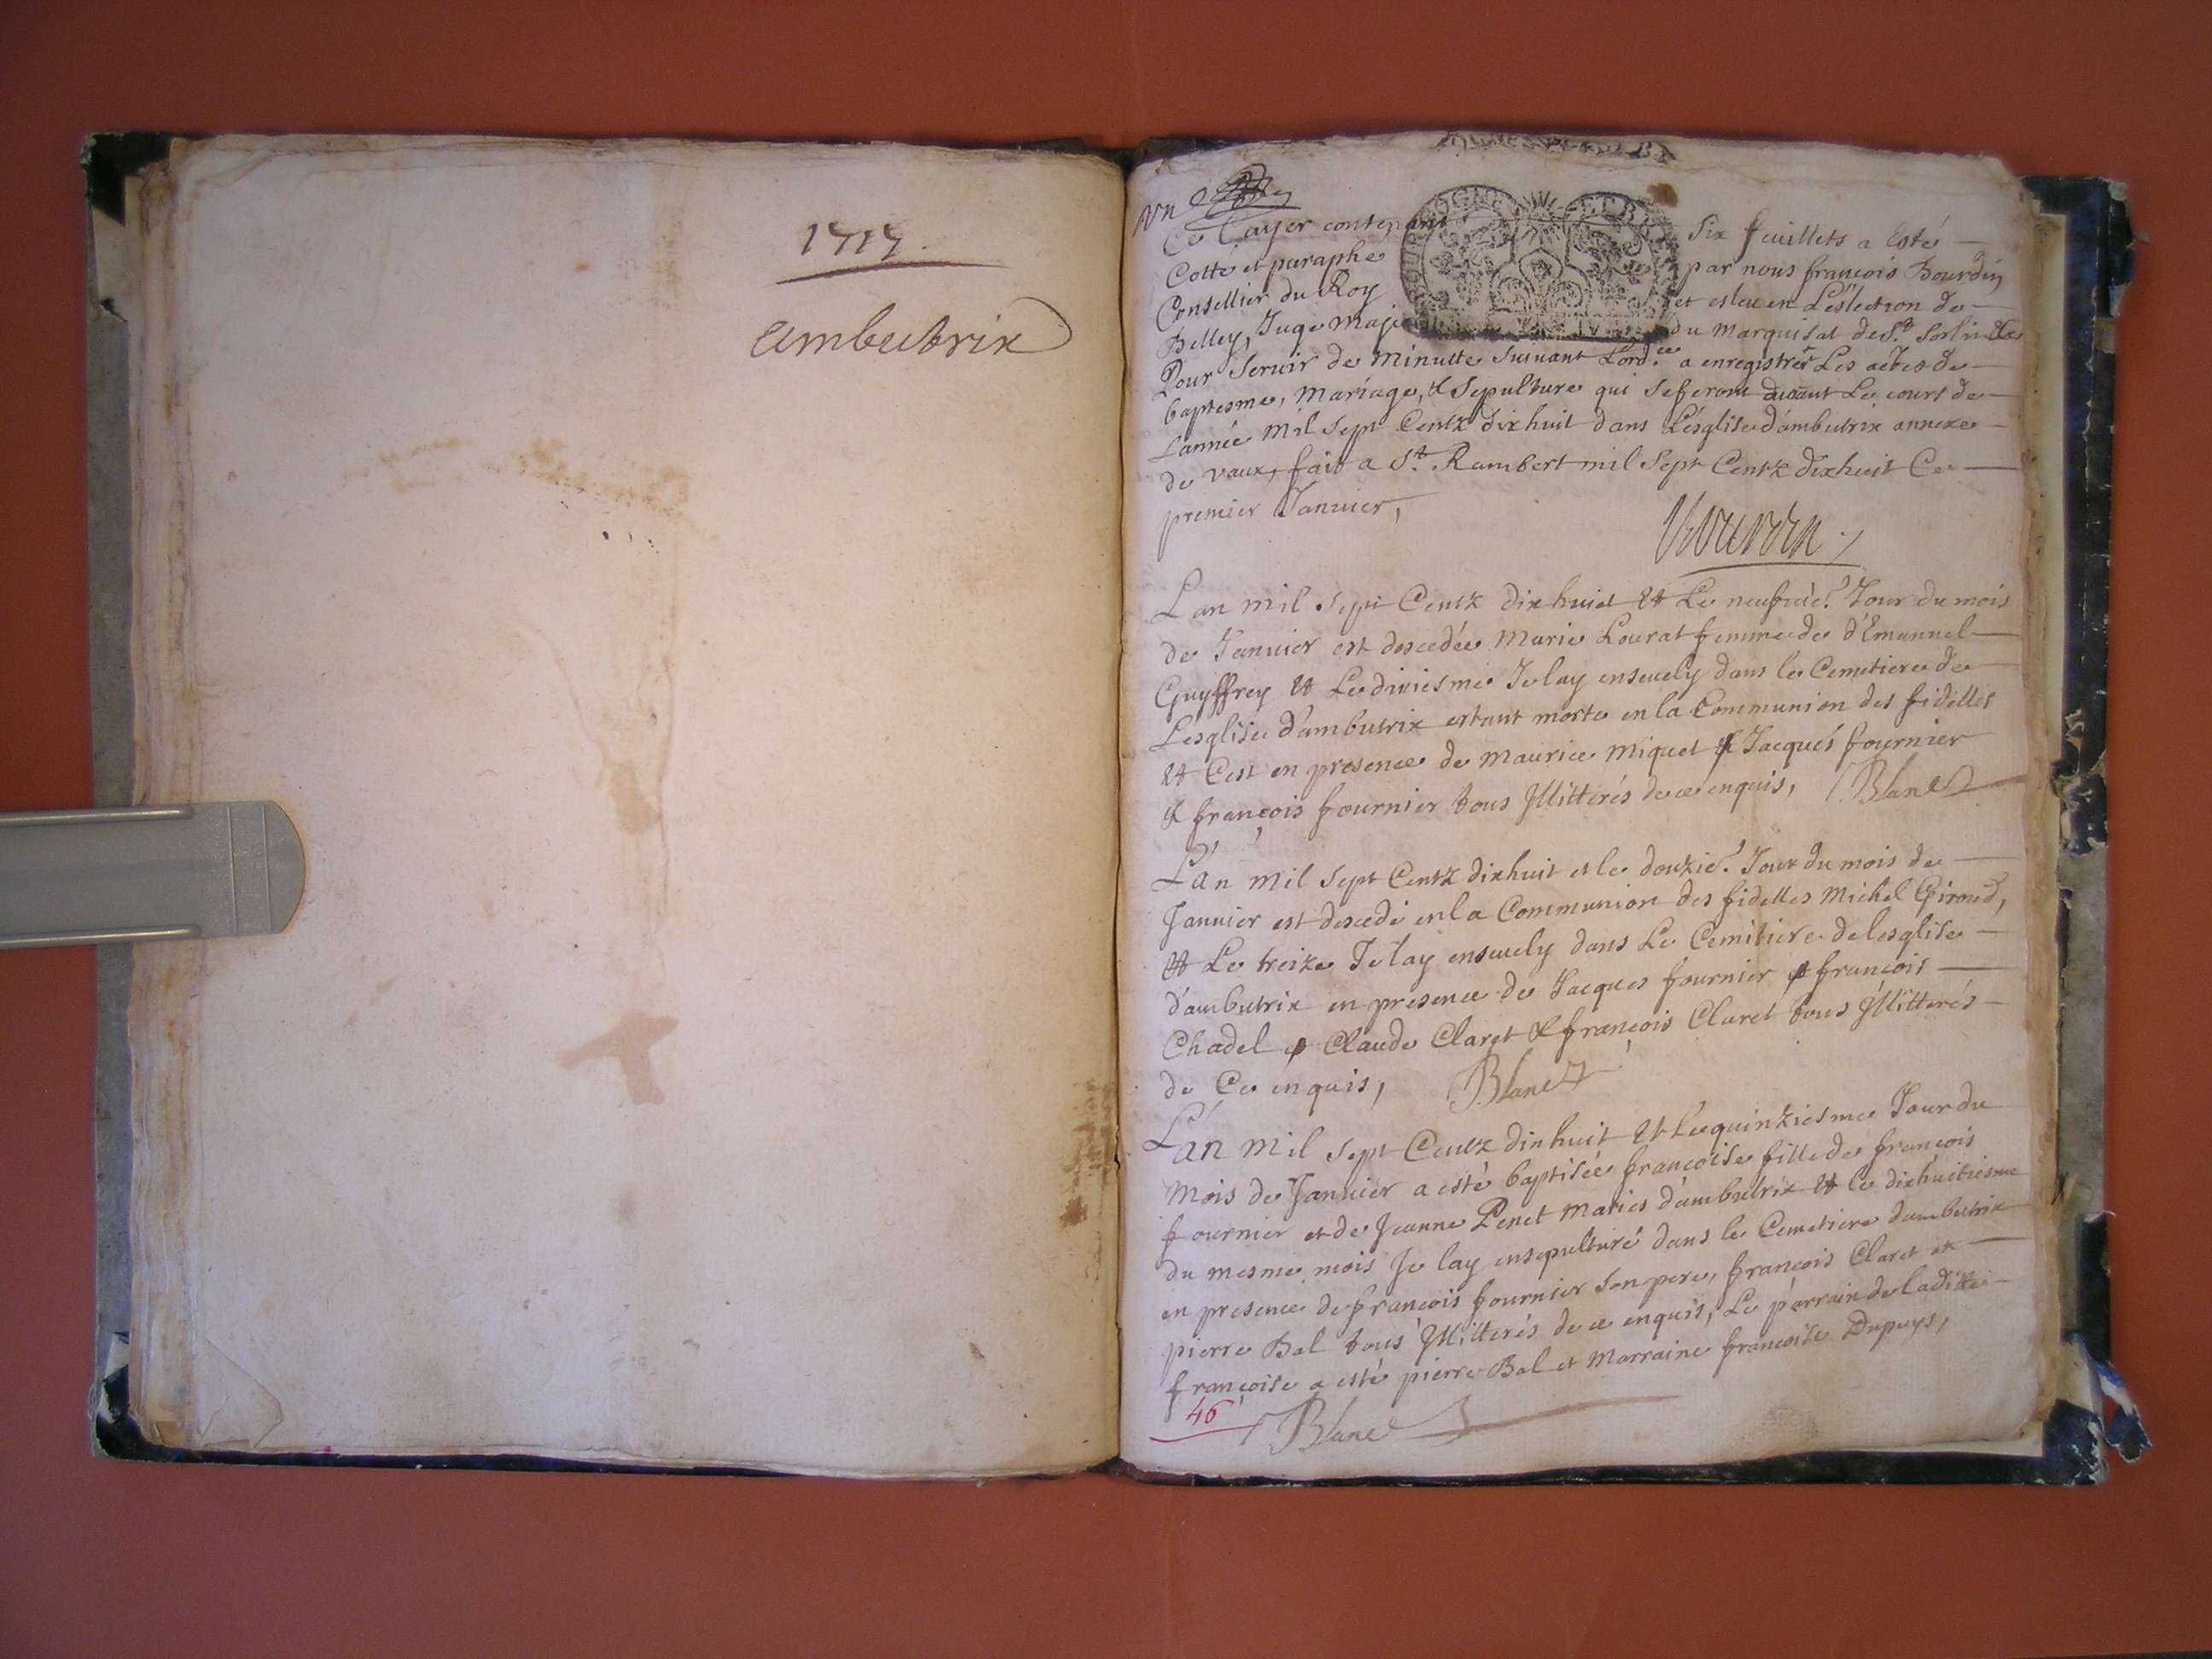 1717.
ambutrix
Un
Ce Cayer contenant six feuillets a Esté
Cotté et paraphé par nous françois Bourdin
Consellier du Roy et esleu en L'eslection de
Belley, Juge Maje du Marquisat de St. Sorlin &c
Pour Servir de Minutte Suivant Lord.ce a enregistrer Les actes de
baptesme, Mariage, & Sepulture qui seferont durant Le court de
Lannée Mil Sept Centz dixhuit dans L'esglise d'ambutrix annexe
de vaux, fait a St. Rambert mil Sept Centz dixhuit Ce
premier Janvier,
Bourdin
Lan mil Sept Centz dixhuict Et Le neufvie. Jour du mois
de Janvier est descedée Marie Lourat femme de d'Emanuel
Guyffrey Et Le dixiesme Je lay ensevely dans le Cemetiere de
Lesglise d'ambutrix estant morte en la Communion des fidelles
Et C'est en presence de Maurice Miquet & Jacques fournier
& françois fournier tous Jllitterés de ce enquis, Blanc
L'an Mil Sept Centz dixhuit et le douzie. Jour du mois de
Janvier est descedé en la Communion des fidelles Michel Giroud,
Et Le treize Je lay ensevely dans Le Cemitiere de lesglise
d'ambutrix en presence de Jacques fournier & françois
Chadel & Claude Claret & françois Claret tous Jllitterés
de Ce enquis, Blanc
L'an Mil Sept Centz dixhuit Et Le quinziesme Jour du
Mois de Janvier a esté baptisée françoise fille de françois
fournier et de Jeanne Penet Mariés d'ambutrix Et le dixhuitiesme
du mesme mois Je lay ensepulturé dans le Cemetiere dambutrix
en presence de françois fournier Son pere, françois Claret et
pierre Bal tous Jllitterés de ce enquis, Le parrain de ladite
françoise a esté pierre Bal et Marraine françoise Dupuys,
46
Blanc